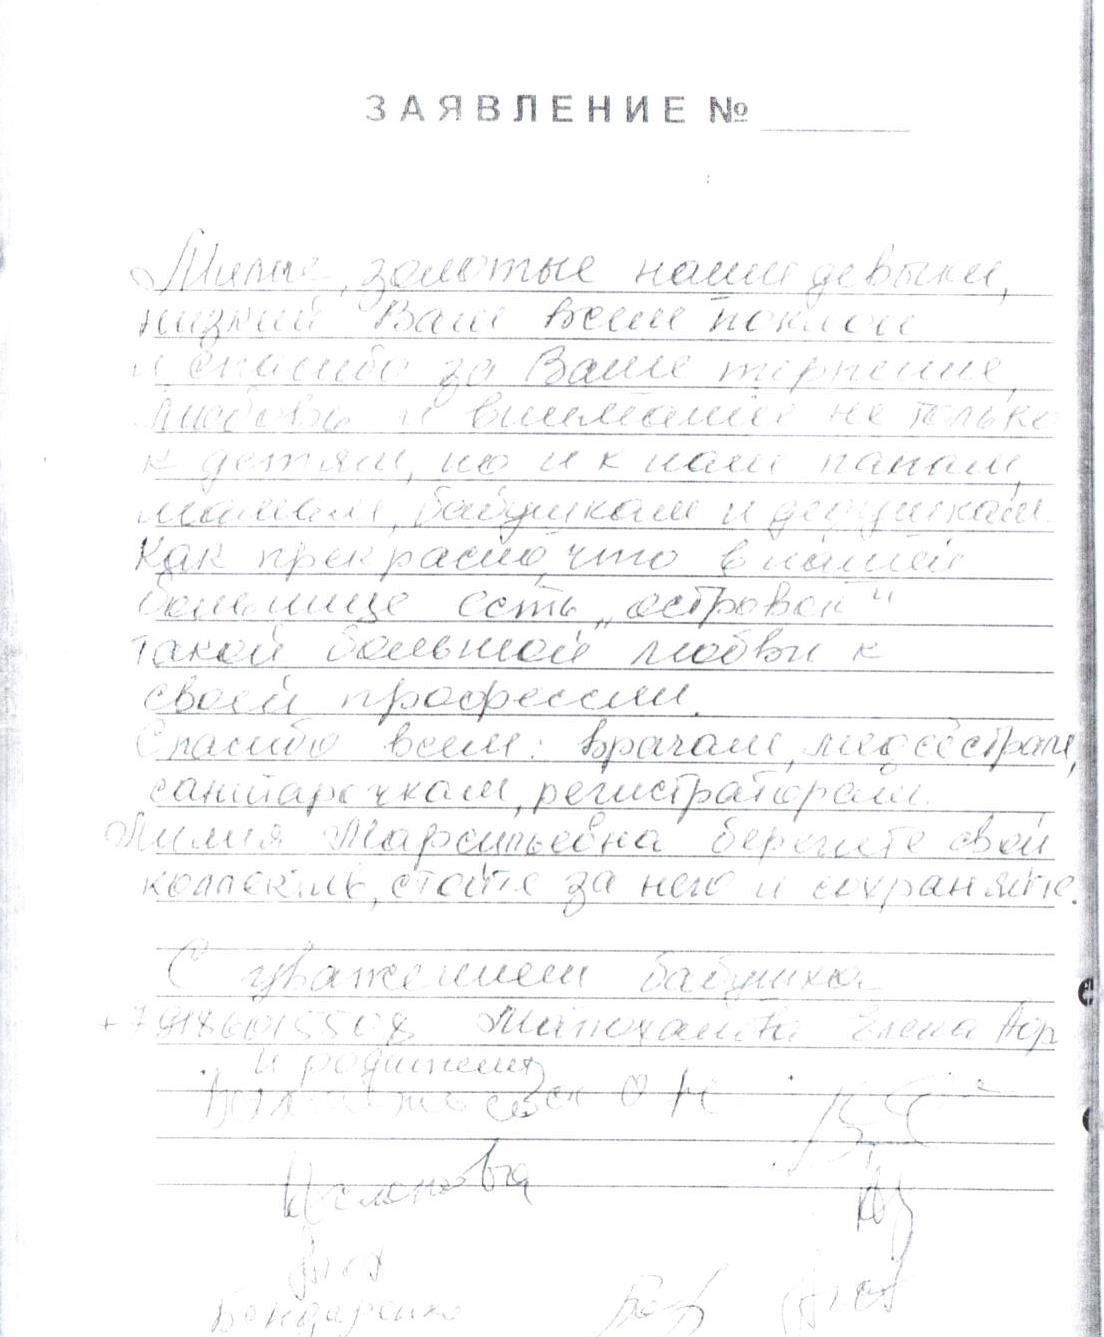 ЗАЯВЛЕНИЕ №
Милые, золотые наши девочки,
низкий Вам всем поклон
и спасибо за Ваше терпение,
любовь и внимание не только
к детям, но и к нам папам,
мамам, бабушкам и дедушкам.
Как прекрасно, что в нашей
больнице есть „островок"
такой большой любви к
своей профессии.
Спасибо всем: врачам, медсёстрам,
санитарочкам, регистраторам.
Лилия Марсильевна берегите свой
коллектив, стойте за него и сохраняйте.
С уважением бабушка
+79186015508 Елена
и родители
Асланова
Бондаренко